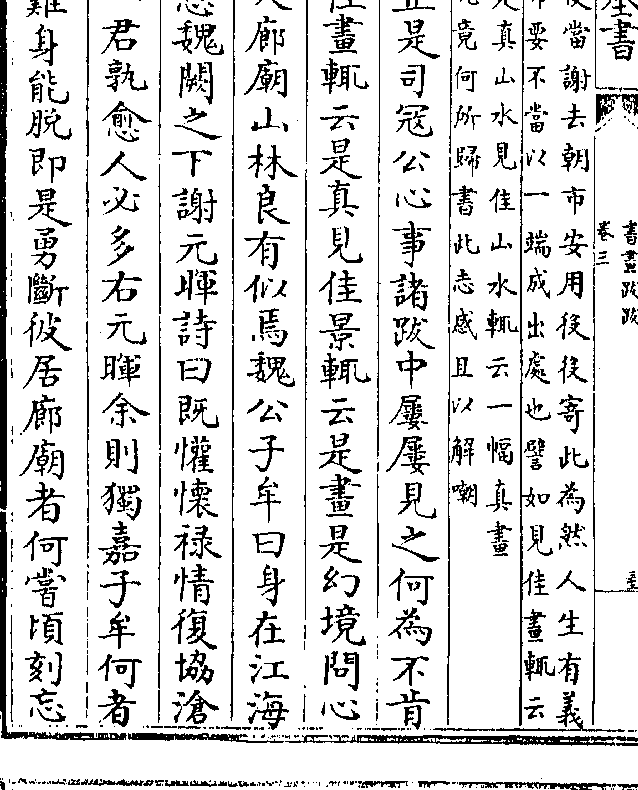 書
書畫跋跋
卷三
當謝去朝市安用役役寄此為然人生有義
要不當以一端成出處也譬如見佳畫輒云
是真山水見佳山水輒云一幅真畫
竟何所歸書此志感且以解嘲
正是司冦公心事諸跋中屢屢見之何為不肯
佳畫輒云是真見佳景輒云是畫是幻境問心
夫廊廟山林良有似焉魏公子牟曰身在江海
魏闕之下謝元暉詩曰既懽懷禄情復協滄
君孰愈人必多右元暉余則獨嘉子牟何者
難身能脱即是勇斷彼居廊廟者何嘗頃刻忘